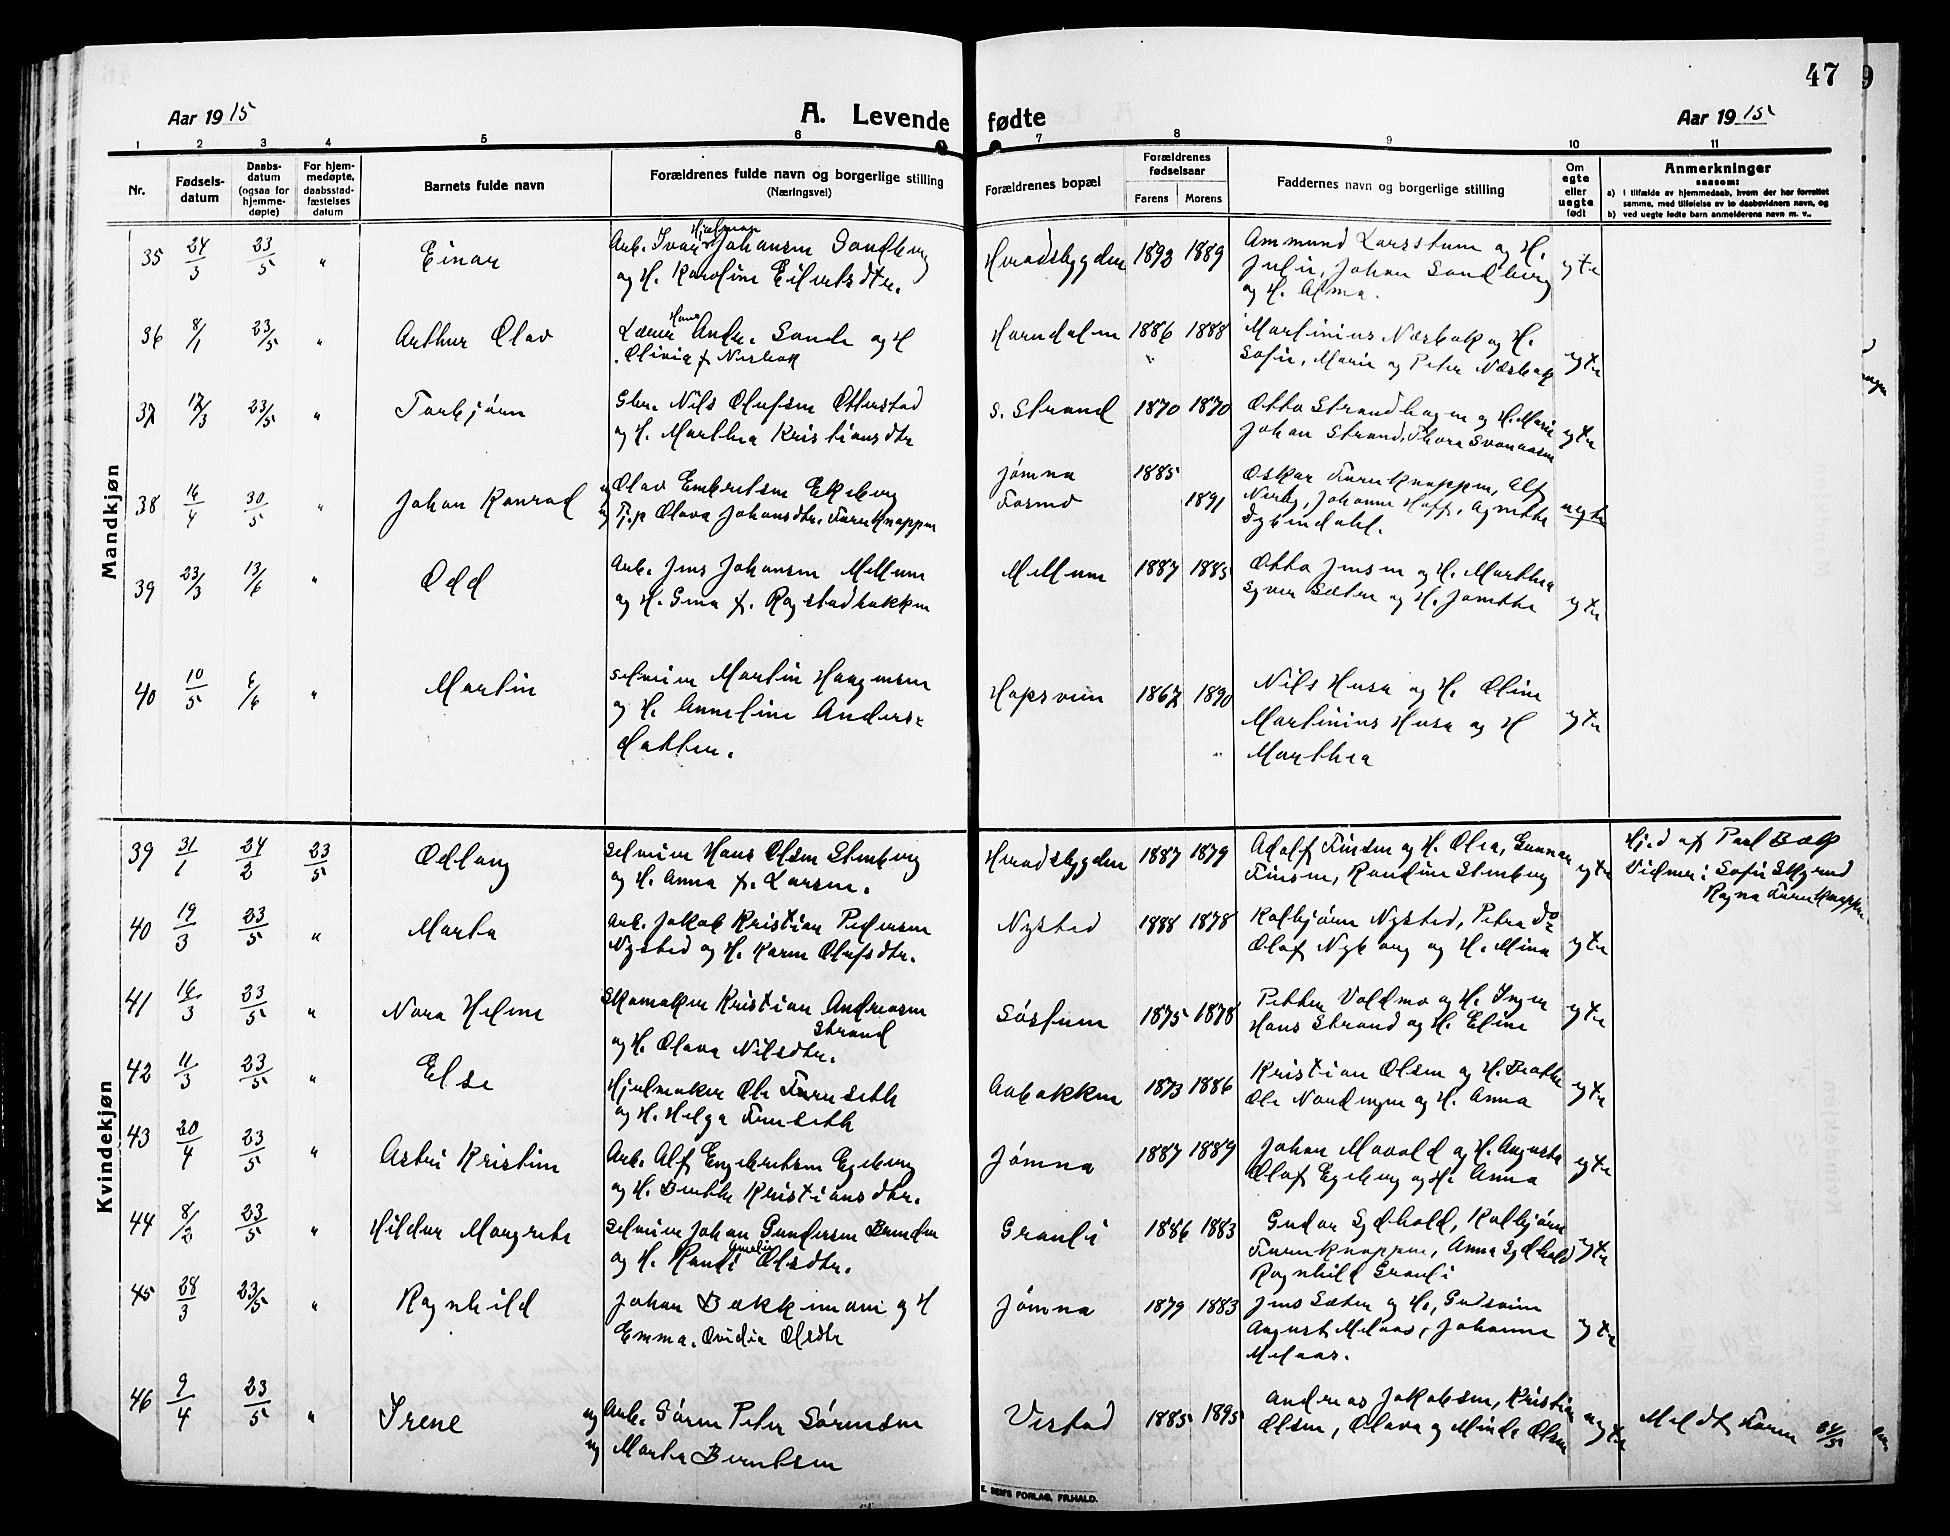 47
Aar 1915
A. Levende fødte
Aar 1915
1 2 3 4 5 6 7 8 9 10 11
Nr.
Fødselsdatum
Daabsdatum (ogsaa for hjemmedøpte)
For hjemmedøpte, daabsstadfæstelses datum
Barnets fulde navn
Forældrenes fulde navn og borgerlige stilling
(Næringsvei)
Forældrenes bopæl
Forældrenes fødselsaar
Farens Morens
Faddernes navn og borgerlige stilling
Om egte eller uegte født
Anmerkninger
saasom:
a) i tilfælde av hjemmedaab, hvem der har forrettet
samme, med tilføielse av to daabsvidners navn, og
b) ved uegte fødte barn anmelderens navn m. v..
Mandkjøn
35 24/3 23/5 " Einar
Arb. Ivar Hjalmar Johansen Sandberg
og H. Karoline Eilertsdtr.
Heradsbygden 1893 1889
Ammund Larsstuen og H.
Julie, Johan Sandberg
og H. Alma.
egte
36 8/1 23/5 " Arthur Olav
Lærer Hans Andr. Sande og H
Olivia f. Nesbak
Horndalen 1886 1888
Martinius Næsbak og H.
Sofie, Marie og Peter Næsbak
egte
37 17/3 23/5 " Torbjørn
Gbr. Nils Olufsen Otterstad
og H. Marthea Kristiansdtr
S. Strand 1870 1870
Otto Strandhagen og H. Marie
Johan Strand, Thora Svenaasen
egte
38 16/4 30/5 " Johan Konrad
ug Olav Embretsen Ekeberg
ug T.p Olava Johansdtr. Furuknappen
Jømna 1885
Fosmo 1891
Oskar Furuknappen, Alf
Nerby, Johanne Hoff, Agnethe
Dybendahl.
uegte
39 23/3 13/6 " Odd
Arb. Jens Johansen Mellum
og H. Gina f. Rogstadbakken
Mellum 1887 1885
Otto Jensen og H. Marthea
Syver Sæter og H. Janethe
egte
40 10/5 6/6 " Martin
Selveier Martin Haagensen
og H. Anneline Anders-
datter.
Hopsveen 1867 1890
Nils Husa og H. Oline
Martinius Husa og H
Marthea
egte
Kvindekjøn
39 31/1 24/2 23/5 Odlaug
Selveier Hans Olsen Stenberg
og H. Anna f. Larsen.
Heradsbygden 1887 1879
Adolf Finsen og H. Olea, Gunnar
Finsen, Randine Stenberg
egte
Hjed af Paul Bæk
Vidner: Sofie Skyrud
Ragna Furuknappen
40 19/3 23/5 " Marta
Arb. Jakob Kristian Pedersen
Nysted og H. Karen Olufsdtr.
Nysted 1888 1878
Kolbjørn Nysted, Petra do
Olaf Nyhaug og H. Mina
egte
41 16/3 23/5 " Nora Helene
Skomaker Kristian Andreasen
Strand
og H. Olava Nilsdtr.
Sørstuen 1875 1878
Petter Voldmo og H. Inger
Hans Strand og H. Eline
egte
42 11/3 23/5 " Else
Hjulmaker Ole Furuseth
og H. Helga Furuseth
Aabakken 1873 1886
Kristian Olsen og H. Beathe
Ole Nordengen og H. Anna
egte
43 20/4 23/5 " Astri Kristine
Arb. Alf Engebretsen Egeberg
og H. Berthe Kristiansdtr.
Jømna 1887 1889
Johan Movold og H. Augusta
Olaf Egeberg og H. Anna
egte
44 8/2 23/5 " Hildur Margrete
Selveier Johan Gundersen Brenden
og H. Randi Amalie Olsdtr.
Granli 1886 1883
Gudar Sydhold, Kolbjørn
Furuknappen, Anna Sydhold
Ragnhild Granli
egte
45 28/3 23/5 " Ragnhild
Johan Bekkemoni og H
Emma Ovidia Olsdtr
Jømna 1879 1883
Jens Sæter og H., Gudveien
August Melaas, Johanne
Melaas.
egte
46 9/4 23/5 " Irene
ug Arb. Søren Peter Sørensen
ug Marta Berntsen
Vestad 1885 1895
Andreas Jakobsen, Kristian
Olsen, Olava og Minda Olsen
uegte
Meldt Faren 24/5
E. SEM'S FORLAG, FR.HALD.